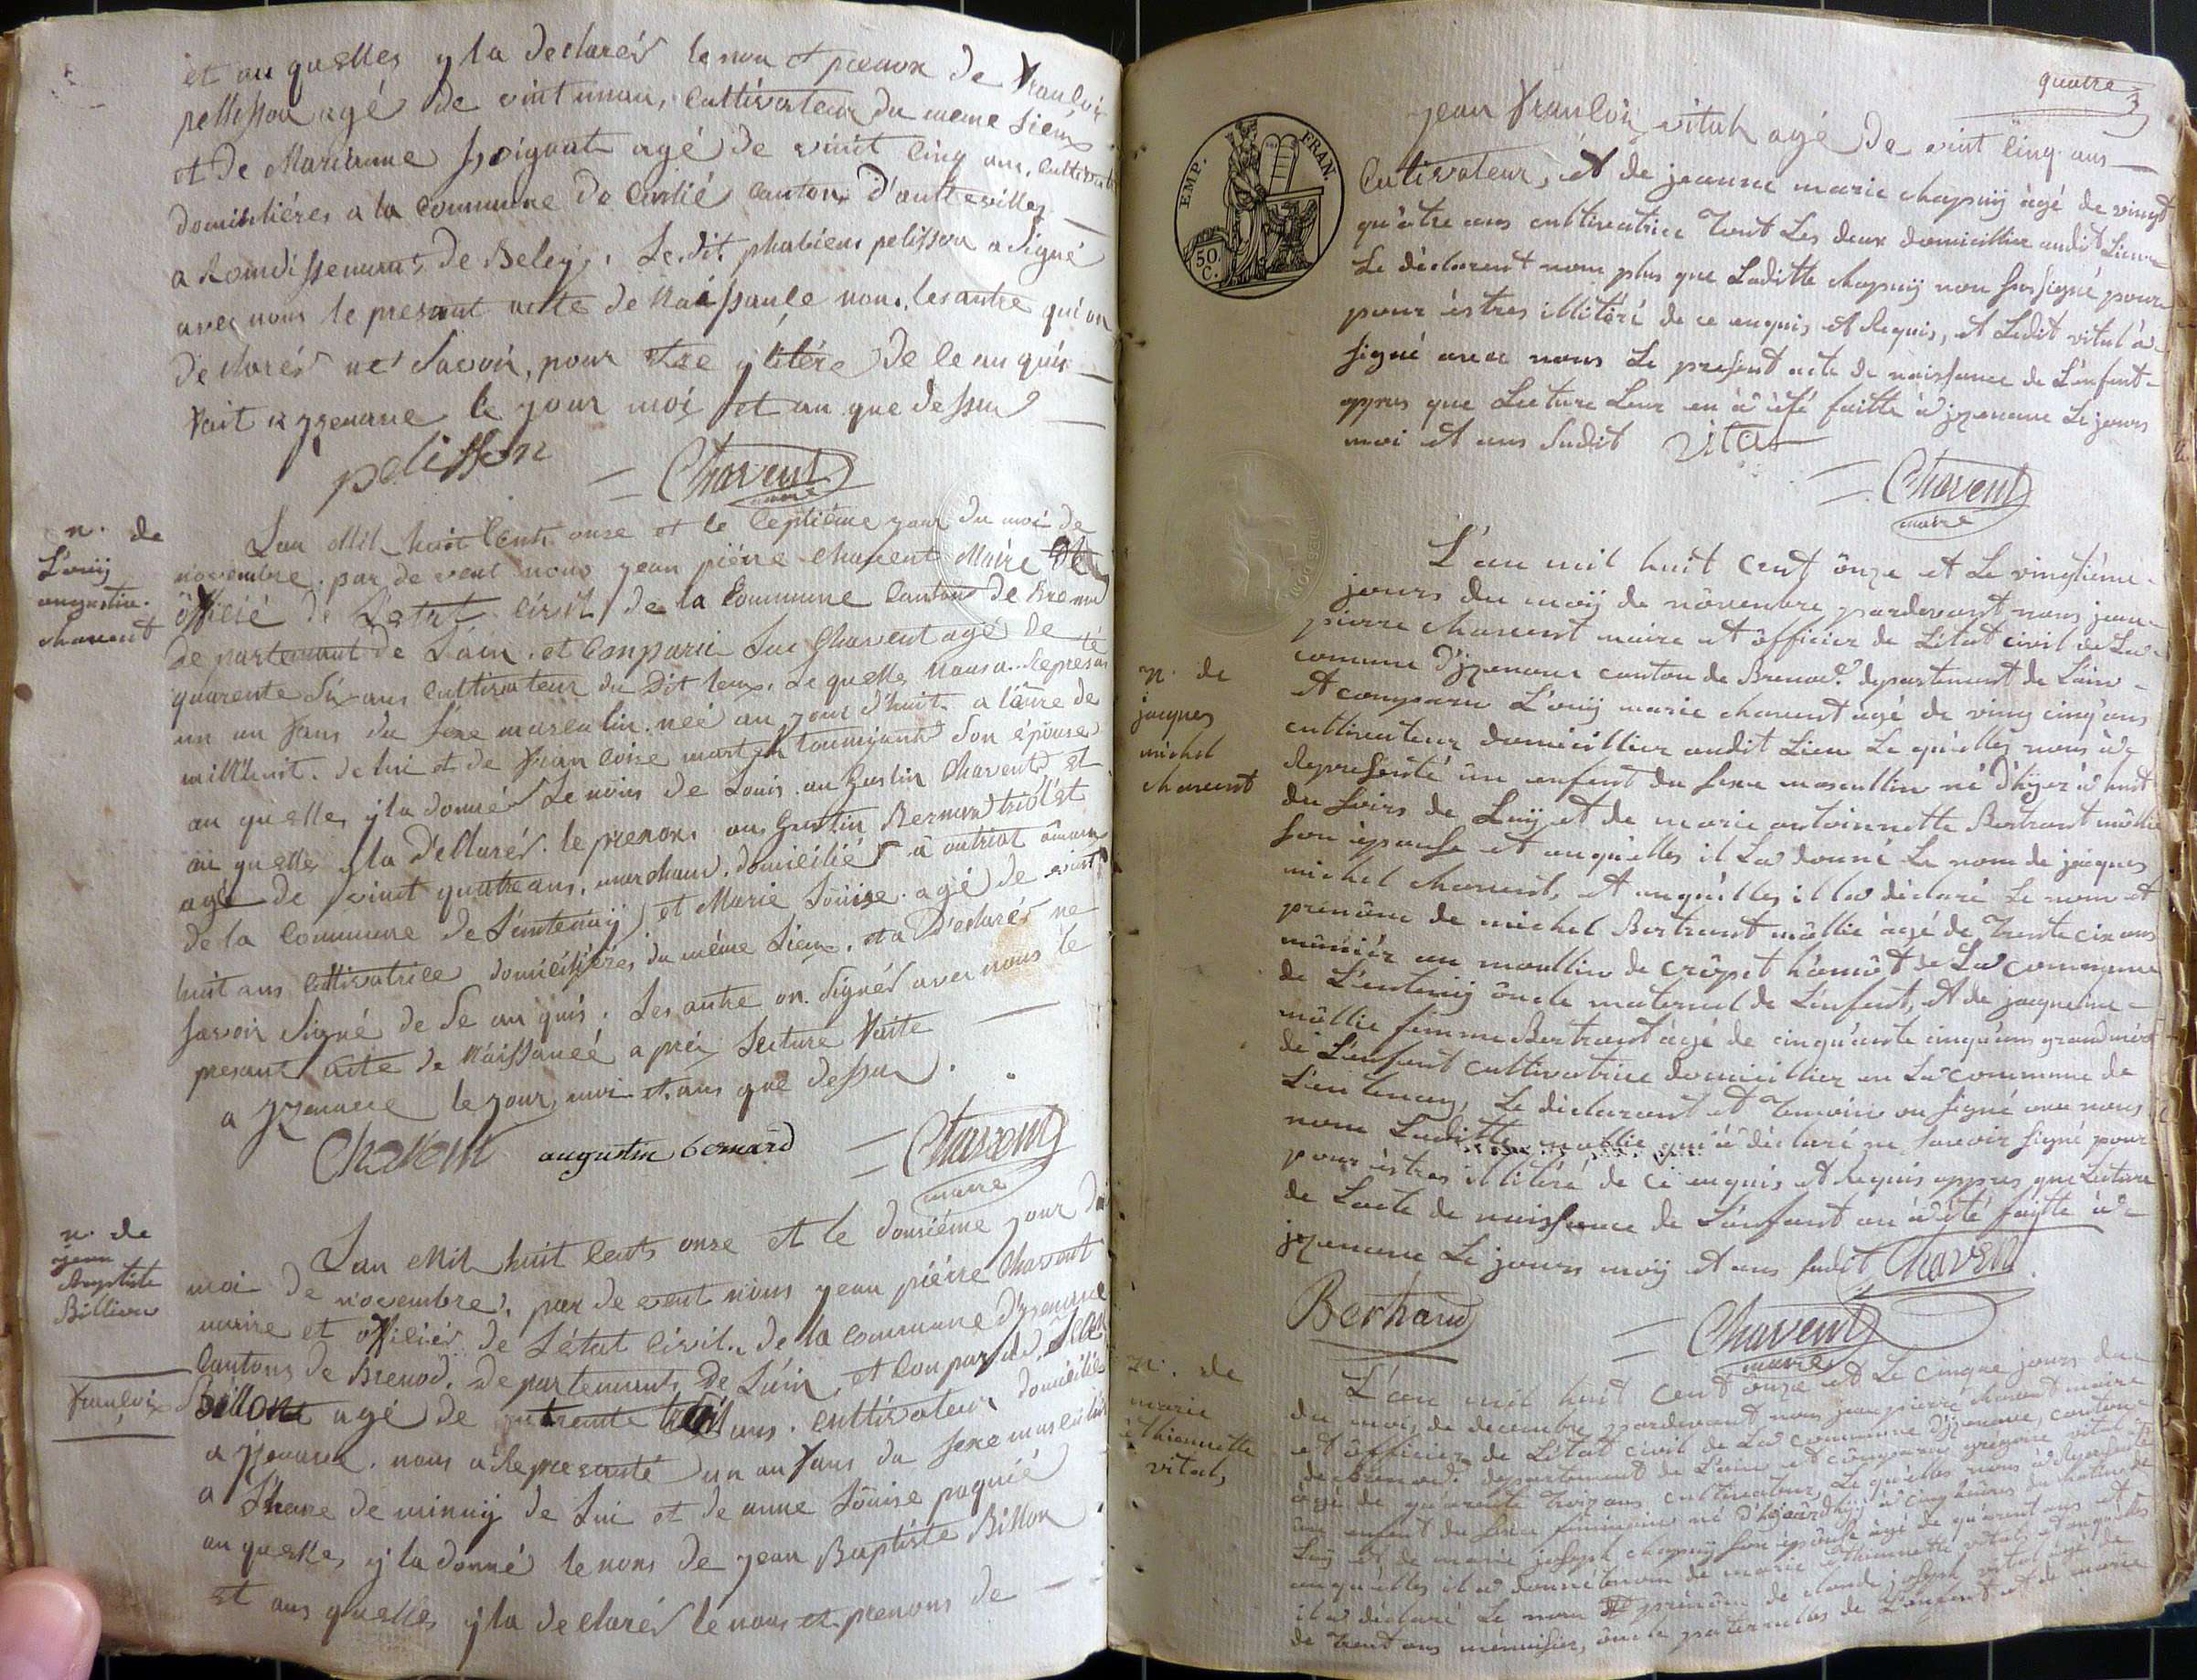 et au quelles y la declarés le nom et prenom de françois
pellisson agé de vint un an, cultivateur du meme lieux
et de Marianne agé de vint cinq ans, cultivat
domiciliéres a la commune de canton d'auttevilles
a Rondissemant de Beley. Le dit phabiens pelisson a signé
avec nous le presant acte de Naissance non les autre qui on
declarés ne savoir, pour etre ylitére de le en quis
fait a yzenave le jour moi et an que dessus
pelisson
Chavent
maire
n. de
Louij
augustin
chavent
Lan Mil huit cents onze et le septiéme jour du moi de
novembre par de vent nous jean piérre chavent Maire et
officié de L'etat civil de la commune canton de Brenod
departemant de Lain et comparu Luc Chavent agé de
quarente six ans cultivateur du dit leux. Le quelle nous a Represanté
un an fans du sexe masculin neé au jour d'huit a l'heure de
de lui et de francoise son épouse
au quelles y la donné le nom de Louis augustin Chavent et
au quelles y la déclarés le prenom augustin Bernard
agé de vint quatre ans, marchand domicilié
de la commune de Lentenay et Marie Louise agé de vint
huit ans cultivatrice domiciliéres du même Lieux et a déclarés ne
savoir signé de se en quis. Les autre on signés avec nous le
presant acte de Naissanceé apréz lecture faite
a yzenave le jour, moi et ans que dessu
Chavent augustin bernard Chavent
maire
n. de
jean
Baptiste
Billion
Lan Mil huit cents onze et le douziéme jour du
moi de novembre, par de vent nous jean piérre Chavent
maire et officiér de L'état civil de la commune d'yzenave
Cantons de Brenod, departemants de Lain et comparu
françois
Billon agé de trente huit ans cultivateur domicilié
a yzenave nous a Represanté un an fans du sexe masculin
a L'heure de minuij de Lui et de anne Loüise
au quelles y la donné le nom de jean Baptiste Billon
et aus quelles y la declarés le nom et prenoms de
quatre
EMP. FRAN.
50 C.
jean françois vital agé de vint cinq ans
Cultivateur, et de jeanne marie chapuij âgé de vingt
qu'atre ans cultivatrice tout Les deux domicillier audit Lieux
Le déclarent nom plus que Laditte chapuij non sousigné pour
pour êstres illitéré de ce enquis et Requis, et Ledit vital à
signé avec nous Le present acte de naissance de L'enfent
appres que Lecture Leur en à été faitte à jzenave Le jours
moi et ans Sudit vital
Chavent
maire
n. de
jacques
michel
chavent
L'an mil huit cent ônze et Le vingtiéme
jours du moij de novembre pardevant nous jean
pierre chavent maire et ôfficier de L'état civil de La
comune d'jzenave canton de Brenod departement de L'ain
et comparu L'ouij marie chavent agé de ving cinq ans
cultivateur domicillier audit Lieu Le qu'elles nous à
Represénté ûn enfent du sexe masculin né d'hyer à huit
du soirs de Luij et de marie antoinnette Bertrant mollie
son épouse et auqu'elles il La donné Le nom de jacques
michel chavent, et auqu'elles il la déclaré Le nom et
prénôm de michel Bertrant mollie âgé de trente cix ans
mûniér au moullin de crôpet hamôt de La commune
de L'entenij ôncle maternel de L'enfent, et de jacqueme
mollie femme Bertrant âgé de cinqu'ante cinqu'ans grand mére
de L'enfent cultivatrice domicillier en La commune de
L'entenay, Le déclarant et temoin on signé avec nous
nom Laditte mollie qui à déclaré ne savoir signé pour
pour êstres illitéré de ce enquis et Requis appres que Lecture
de L'acte de naissance de L'enfant en à été faitte à
jzenave Le jours moij et ans sudit Chavent
Bertrand
Chavent
maire
n. de
marie
éthiennette
vital
L'an mil huit cent ônze et Le cinque jours du
du mois de decembre pardevant nous jean pierre chavent maire
et ôfficier de L'état civil de La commune d'jzenave, canton
de Brenod departement de L'ain et comparu grégoire vital
âgé de qu'arente troiz ans cultivateur, Le qu'elles nous à Represénté
ûn enfent du sexe feminine né d'hujourd'hij à cinq heures du matin de
Luij et de marie joseph chapuij son epouse âgé de qu'arent ans et
auqu'elles il à donné Le nom de marie éthiennette vital et auqu'elles
il à déclaré Le nom et prénôm de claude joseph vital âgé de
de trent ans ménuisier, ôncle paternelles de L'enfent et de marie